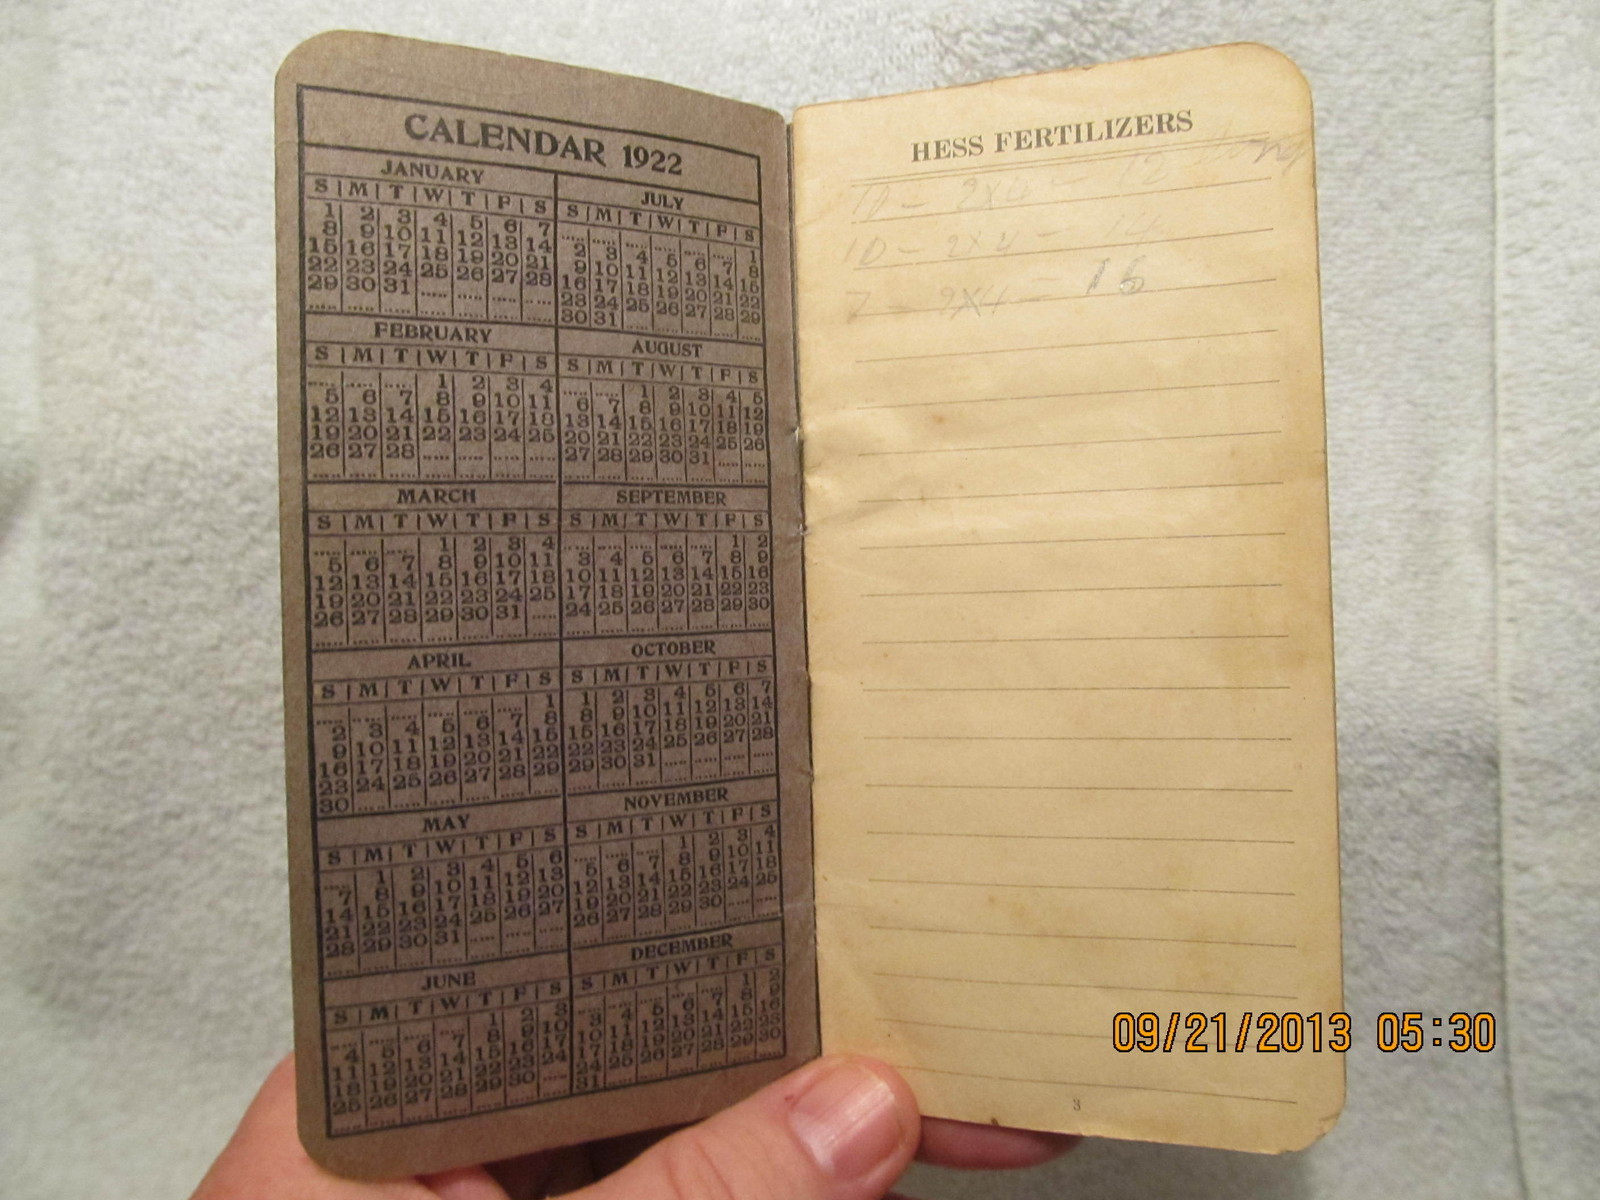 CALENDAR 1922
JANUARY
S M T W T F S
1 2 3 4 5 6 7
8 9 10 11 12 13 14
15 16 17 18 19 20 21
22 23 24 25 26 27 28
29 30 31
FEBRUARY
S M T W T F S
1 2 3 4
5 6 7 8 9 10 11
12 13 14 15 16 17 18
19 20 21 22 23 24 25
26 27 28
MARCH
S M T W T F S
1 2 3 4
5 6 7 8 9 10 11
12 13 14 15 16 17 18
19 20 21 22 23 24 25
26 27 28 29 30 31
APRIL
S M T W T F S
1
2 3 4 5 6 7 8
9 10 11 12 13 14 15
16 17 18 19 20 21 22
23 24 25 26 27 28 29
30
MAY
S M T W T F S
1 2 3 4 5 6
7 8 9 10 11 12 13
14 15 16 17 18 19 20
21 22 23 24 25 26 27
28 29 30 31
JUNE
S M T W T F S
1 2 3
4 5 6 7 8 9 10
11 12 13 14 15 16 17
18 19 20 21 22 23 24
25 26 27 28 29 30
JULY
S M T W T F S
1
2 3 4 5 6 7 8
9 10 11 12 13 14 15
16 17 18 19 20 21 22
23 24 25 26 27 28 29
30 31
AUGUST
S M T W T F S
1 2 3 4 5
6 7 8 9 10 11 12
13 14 15 16 17 18 19
20 21 22 23 24 25 26
27 28 29 30 31
SEPTEMBER
S M T W T F S
1 2
3 4 5 6 7 8 9
10 11 12 13 14 15 16
17 18 19 20 21 22 23
24 25 26 27 28 29 30
OCTOBER
S M T W T F S
1 2 3 4 5 6 7
8 9 10 11 12 13 14
15 16 17 18 19 20 21
22 23 24 25 26 27 28
29 30 31
NOVEMBER
S M T W T F S
1 2 3 4
5 6 7 8 9 10 11
12 13 14 15 16 17 18
19 20 21 22 23 24 25
26 27 28 29 30
DECEMBER
S M T W T F S
1 2
3 4 5 6 7 8 9
10 11 12 13 14 15 16
17 18 19 20 21 22 23
24 25 26 27 28 29 30
31
HESS FERTILIZERS
10 - 2x4 - 12
10 - 2x4 - 14
7 - 2x4 - 16
3
09/21/2013 05:30